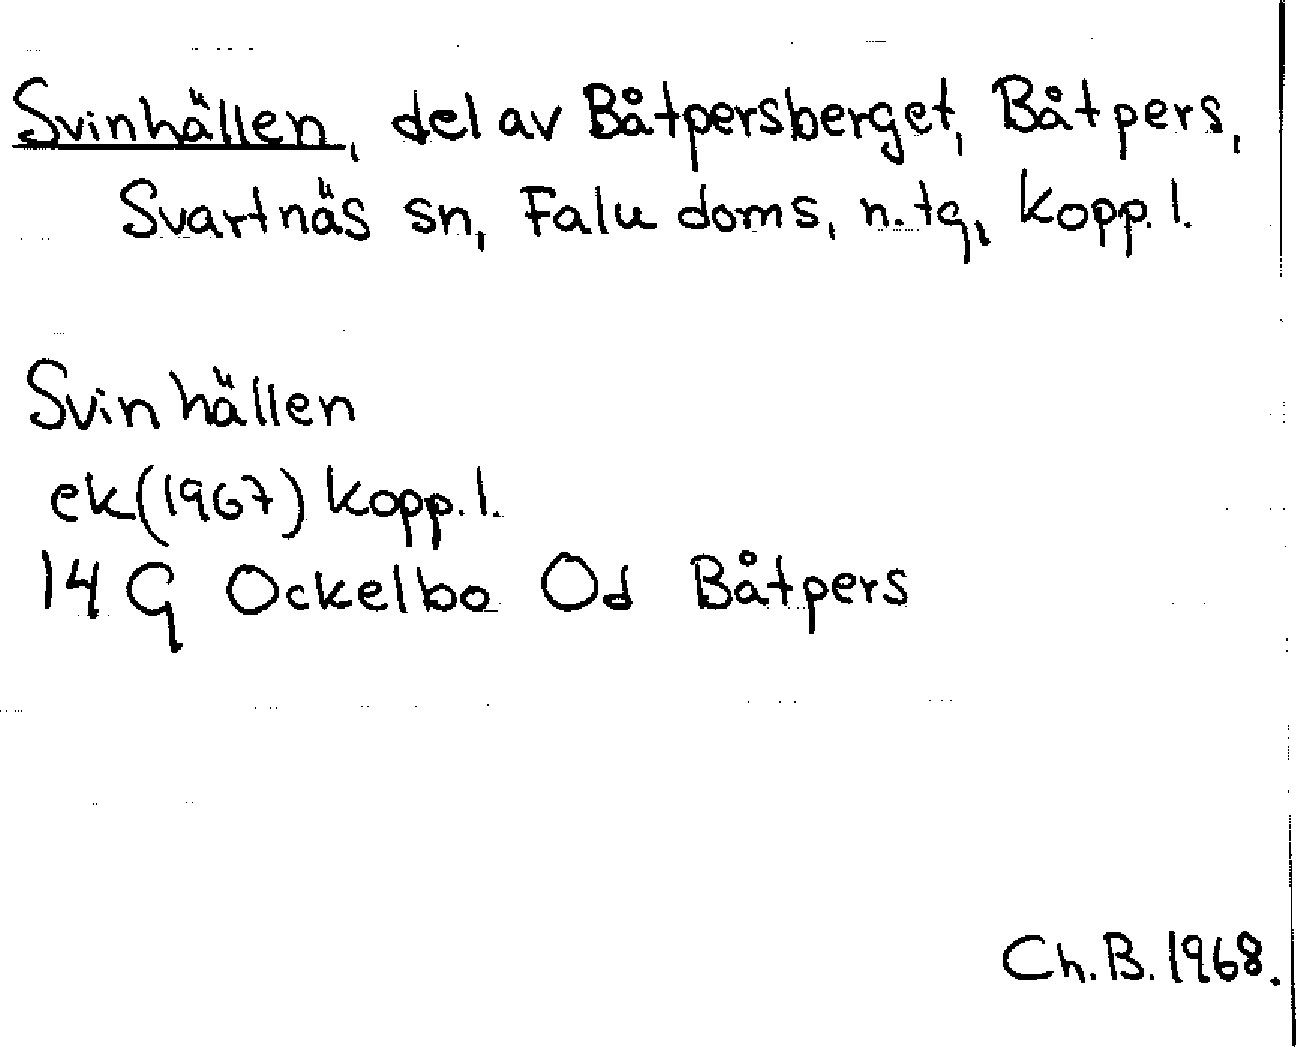 Svinhällen, del av Båtpersberget, Båtpers,
Svartnäs sn, Falu doms, n. tg, Kopp. l.
Svinhällen
ek (1967) Kopp. l.
14 G Ockelbo Od Båtpers
Ch. B. 1968.